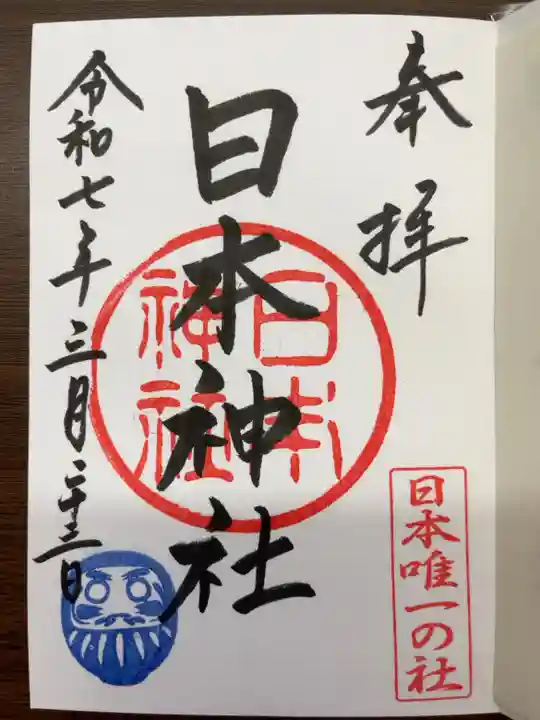 奉拝
日本唯一の社
日本神社
日本神社
令和七年三月二十三日